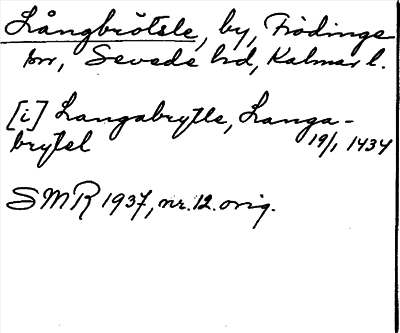 Långbrötsle, by, Frödinge
sn, Sevede hd, Kalmar l.
[i] Langabrytle, Langa-
brytel 19/1 1434
SMR 1937, nr. 12. orig.